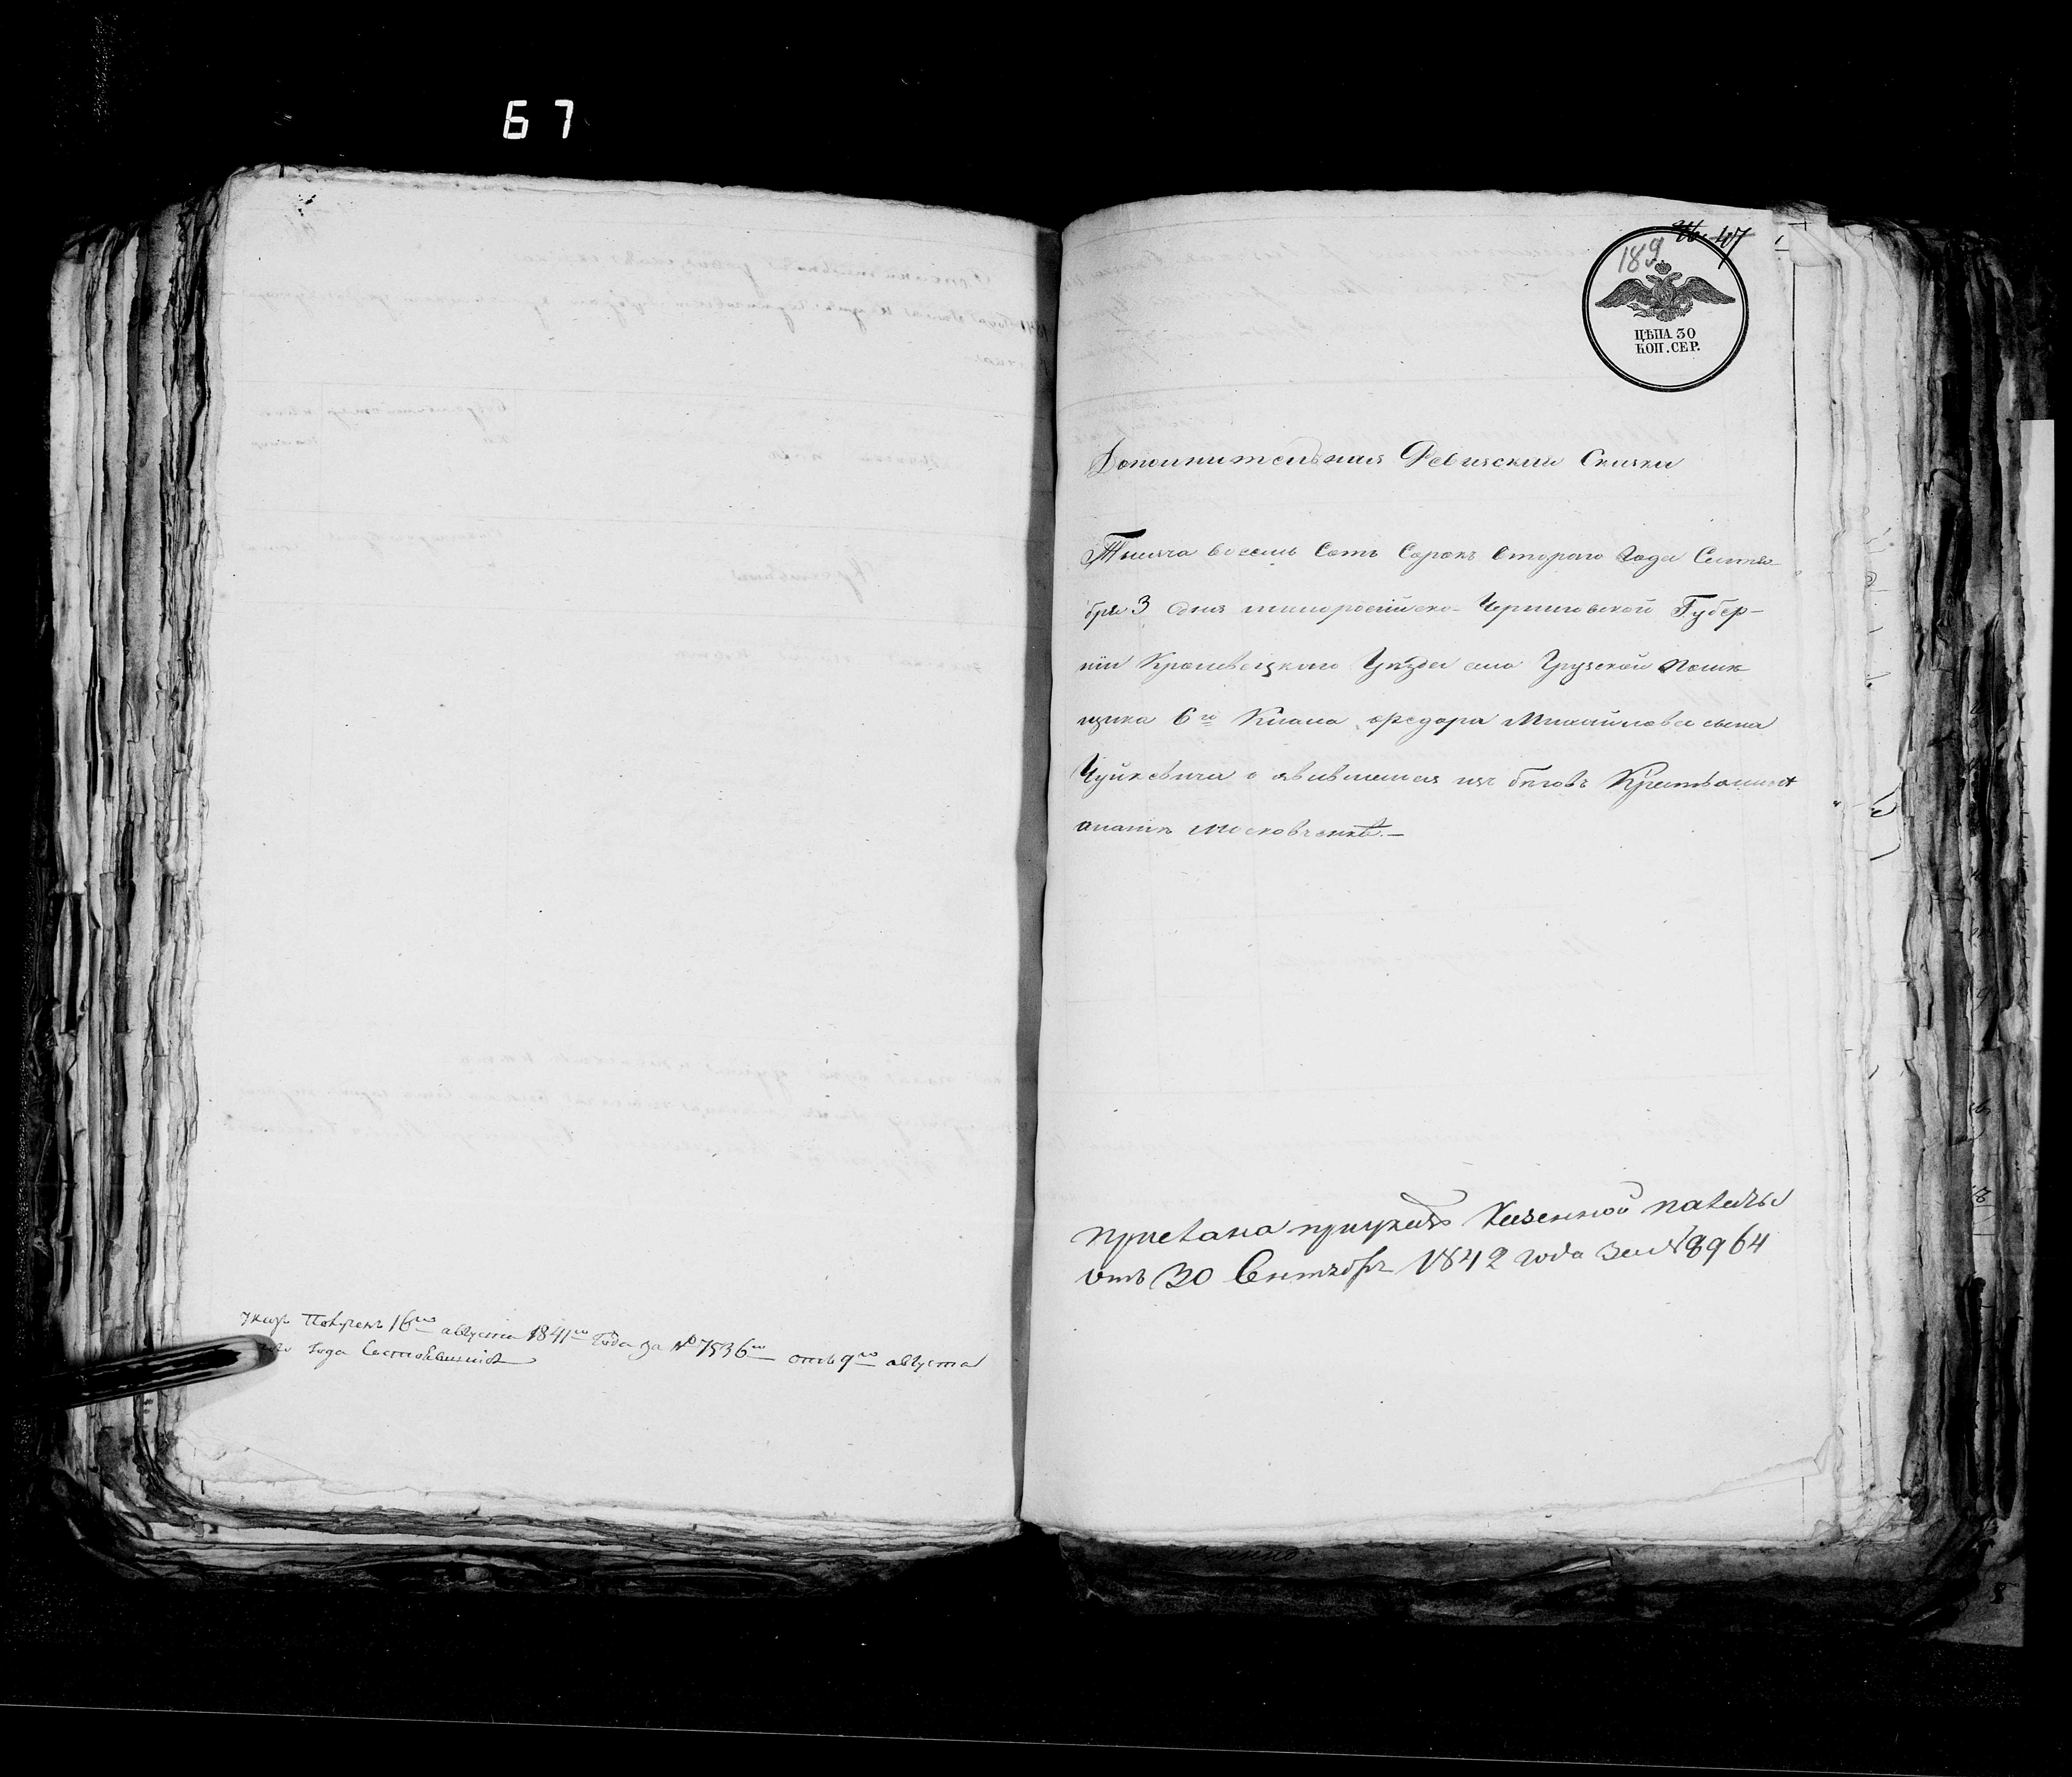 67
указъ Полученъ 16го августа 1841го Года за №7536м отъ 9го августа
того Года Состоявшійся
47
189
ЦѢНА 30
КОП. СЕР.
Дополнительная Ревизская Сказка
Тысяча восемь Сотъ Сорокъ второго Года Сентя-
бря 3 дня малороссійско-Черниговской Губер-
ніи Кролевецкого Уѣзда села Грузской помѣ
щика 6го Класа Федора Михайлова сына
Чуйкевича о явившемся изъ бѣговъ Крестьянинѣ
Московченкѣ.—
прислана при указѣ Казенной палаты
отъ 30 Сентября 1842 года за №8964